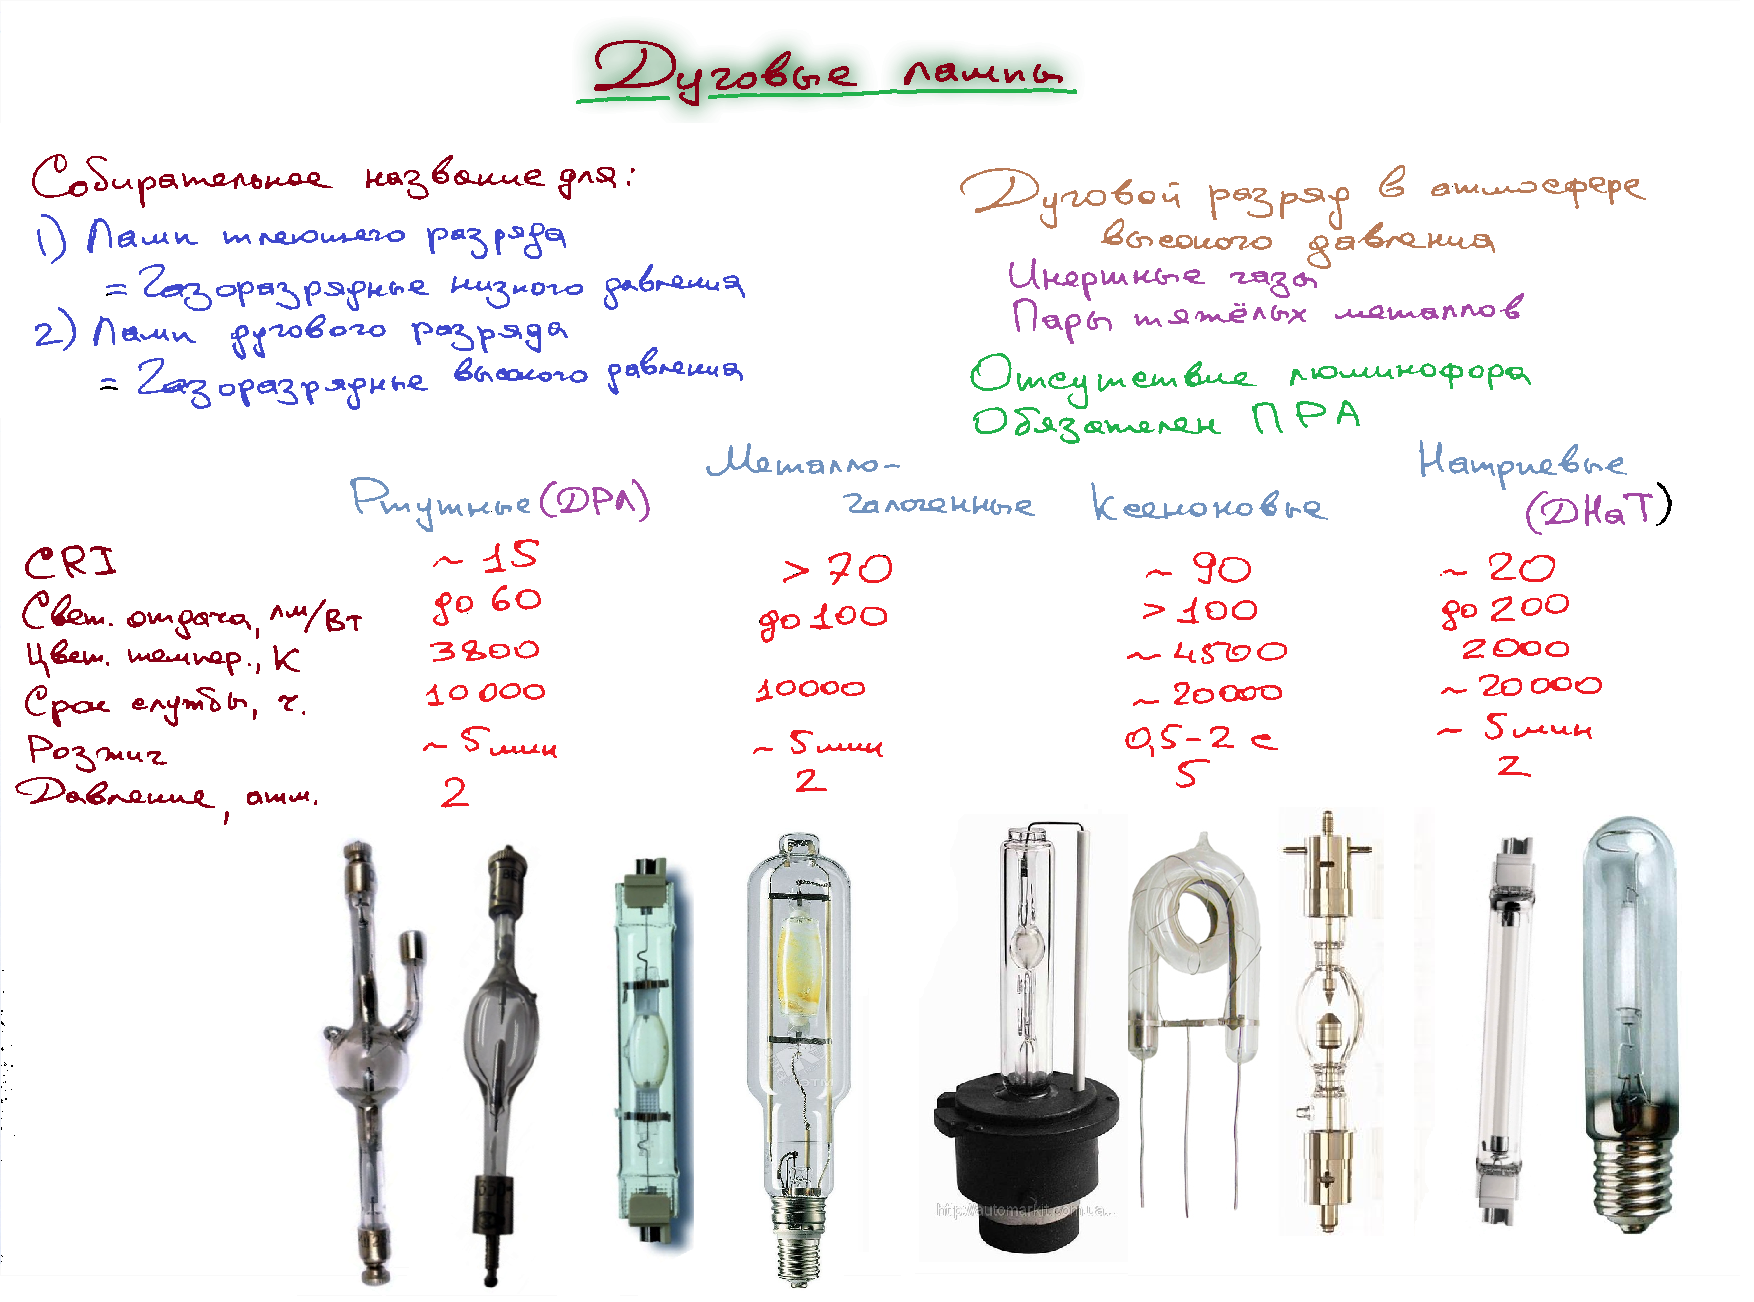 Дуговые лампы
Собирательное название для:
1) Ламп тлеющего разряда
= Газоразрядные низкого давления
2) Ламп дугового разряда
= Газоразрядные высокого давления
Дуговой разряд в атмосфере
высокого давления
Инертные газы
Пары тяжёлых металлов
Отсутствие люминофора
Обязателен ПРА
Ртутные (ДРЛ) Металло-галогенные Ксеноновые Натриевые (ДНаТ)
CRI ~ 15 > 70 ~ 90 ~ 20
Свет. отдача, лм/Вт до 60 до 100 > 100 до 200
Цвет. темпер., К 3800 ~ 4500 2000
Срок службы, ч. 10 000 10000 ~ 20000 ~ 20 000
Розжиг ~ 5 мин ~ 5 мин 0,5 - 2 с ~ 5 мин
Давление, атм. 2 2 5 2
http://automarkit.com.ua...